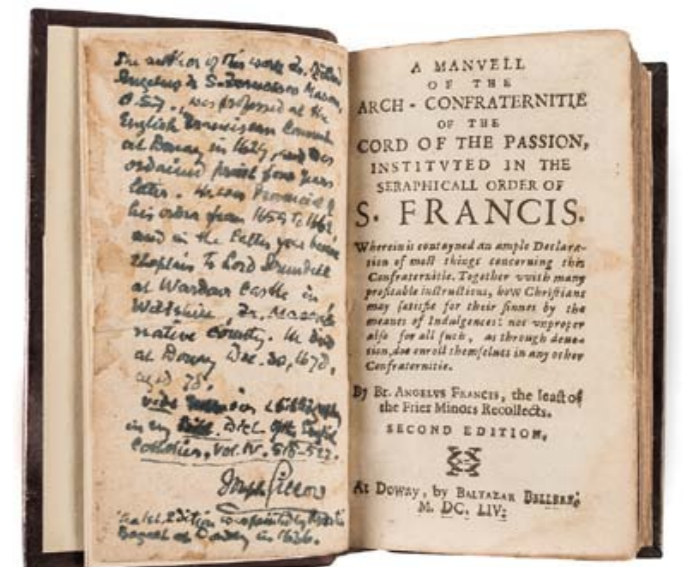 The author of this work Fr.
Angelus à S. Franciscus Mason,
O.S.F., was professed at the
English Franciscan Convent
at Douay in 1624, and was
ordained priest four years
later. He was Provincial of
his order from 1659 to 1662
and in the latter year became
chaplain to Lord Arundell
at Wardour Castle in
Wiltshire, Fr. Mason's
native county. He died
at Douay Dec. 30, 1678,
aged 78.
vide Bibliography
in my Dict. of the English
Catholics, Vol. IV.
Joseph Gillow
Edition was printed by
at Douay in 1636.
A MANVELL
OF THE
ARCH-CONFRATERNITIE
OF THE
CORD OF THE PASSION,
INSTITVTED IN THE
SERAPHICALL ORDER OF
S. FRANCIS.
Wherein is contayned an ample Declara-
tion of most things concerning this
Confraternitie. Together vvith many
profitable instructions, hovv Christians
may satisfie for their sinnes by the
meanes of Indulgences: not vnproper
also for all such, as through deuo-
tion, doe enroll themselues in any other
Confraternitie.
By Br. ANGELVS FRANCIS, the least of
the Frier Minors Recollects.
SECOND EDITION,
At DOWAY, by BALTAZAR BELLERE;
M. DC. LIV: